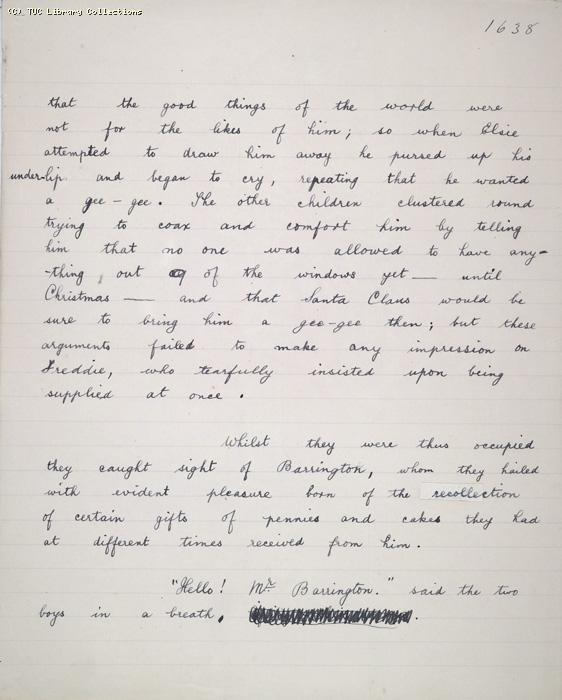 (C) TUC Library Collections
1638
that the good things of the world were
not for the likes of him; so when Elsie
attempted to draw him away he pursed up his
under-lip and began to cry, repeating that he wanted
a gee-gee. The other children clustered round
trying to coax and comfort him by telling
him that no one was allowed to have any-
-thing out of the windows yet — until
Christmas — and that Santa Claus would be
sure to bring him a gee-gee then; but these
arguments failed to make any impression on
Freddie, who tearfully insisted upon being
supplied at once.
Whilst they were thus occupied
they caught sight of Barrington, whom they hailed
with evident pleasure born of the recollection
of certain gifts of pennies and cakes they had
at different times received from him.
"Hello! Mr Barrington." said the two
boys in a breath.